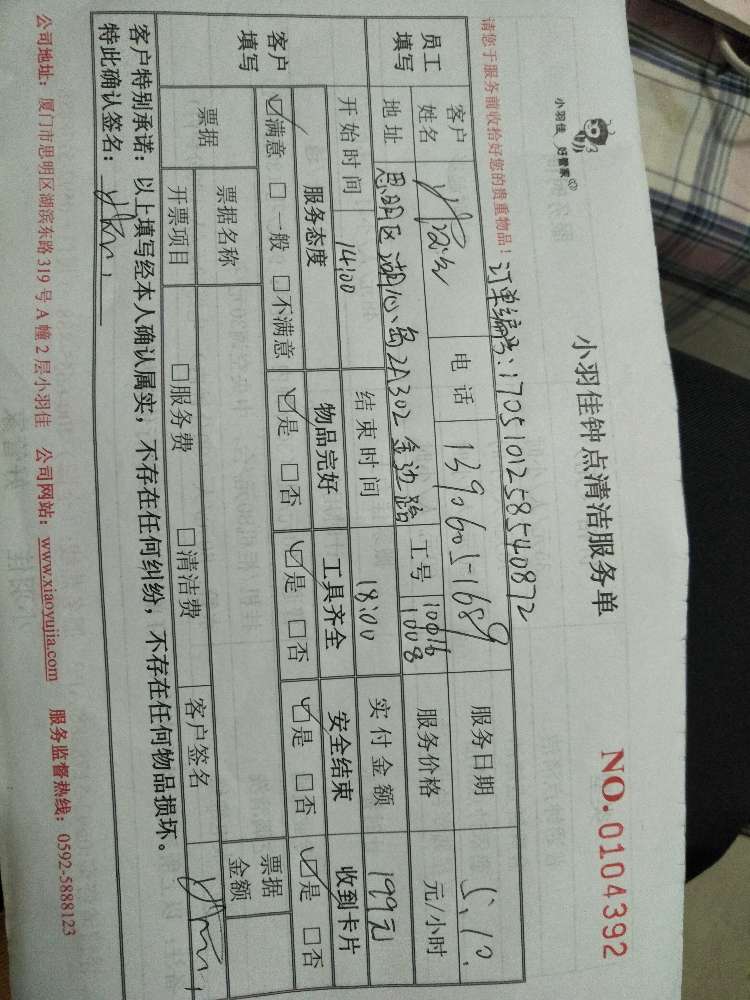 小羽佳 好管家
小羽佳钟点清洁服务单
NO. 0104392
请您于服务前收拾好您的贵重物品！ 订单编号：17051012585540872
员工填写
客户姓名 电话 13906051689 服务日期 5.10.
地址 思明区湖心岛2A302 金边路 工号 10016 1008 服务价格 元/小时
开始时间 14:00 结束时间 18:00 实付金额 199元
客户填写
服务态度 物品完好 工具齐全 安全结束 收到卡片
☑满意 □一般 □不满意 ☑是 □否 ☑是 □否 ☑是 □否 ☑是 □否
票据 票据名称 票据金额
开票项目 □服务费 □清洁费 客户签名
客户特别承诺：以上填写经本人确认属实，不存在任何纠纷，不存在任何物品损坏。
特此确认签名：
公司地址：厦门市思明区湖滨东路319号A幢2层小羽佳 公司网站：www.xiaoyujia.com 服务监督热线：0592-5888123